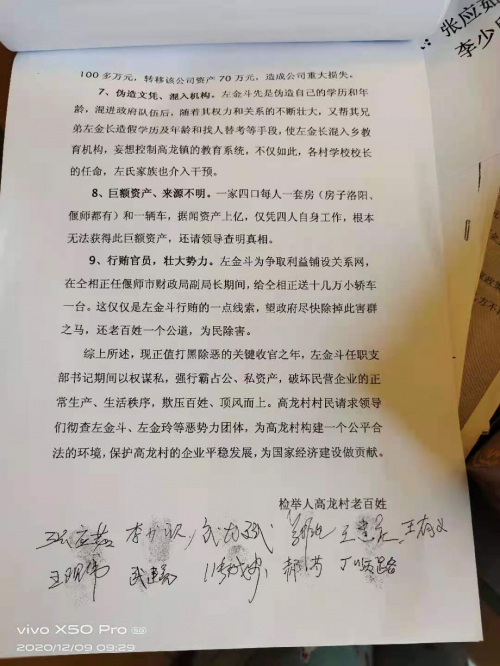 张应茹
李少
100多万元，转移该公司资产70万元，造成公司重大损失。
7、伪造文凭、混入机构。左金斗先是伪造自己的学历和年
龄，混进政府队伍后，随着其权力和关系的不断壮大，又帮其兄
弟左金长造假学历及年龄和找人替考等手段，使左金长混入乡教
育机构，妄想控制高龙镇的教育系统，不仅如此，各村学校校长
的任命，左氏家族也介入干预。
8、巨额资产、来源不明。一家四口每人一套房（房子洛阳、
偃师都有）和一辆车，据闻资产上亿，仅凭四人自身工作，根本
无法获得此巨额资产，还请领导查明真相。
9、行贿官员，壮大势力。左金斗为争取利益铺设关系网，
在全相正任偃师市财政局副局长期间，给全相正送十几万小轿车
一台。这仅仅是左金斗行贿的一点线索，望政府尽快除掉此害群
之马，还老百姓一个公道，为民除害。
综上所述，现正值打黑除恶的关键收官之年，左金斗任职支
部书记期间以权谋私，强行霸占公、私资产，破坏民营企业的正
常生产、生活秩序，欺压百姓、顶风而上。高龙村村民请求领导
们彻查左金斗、左金玲等恶势力团体，为高龙村构建一个公平合
法的环境，保护高龙村的企业平稳发展，为国家经济建设做贡献。
检举人高龙村老百姓
张应茹 王有义
王明伟 武建 郝 丁顺路
vivo X50 Pro
2020/12/09 09:29